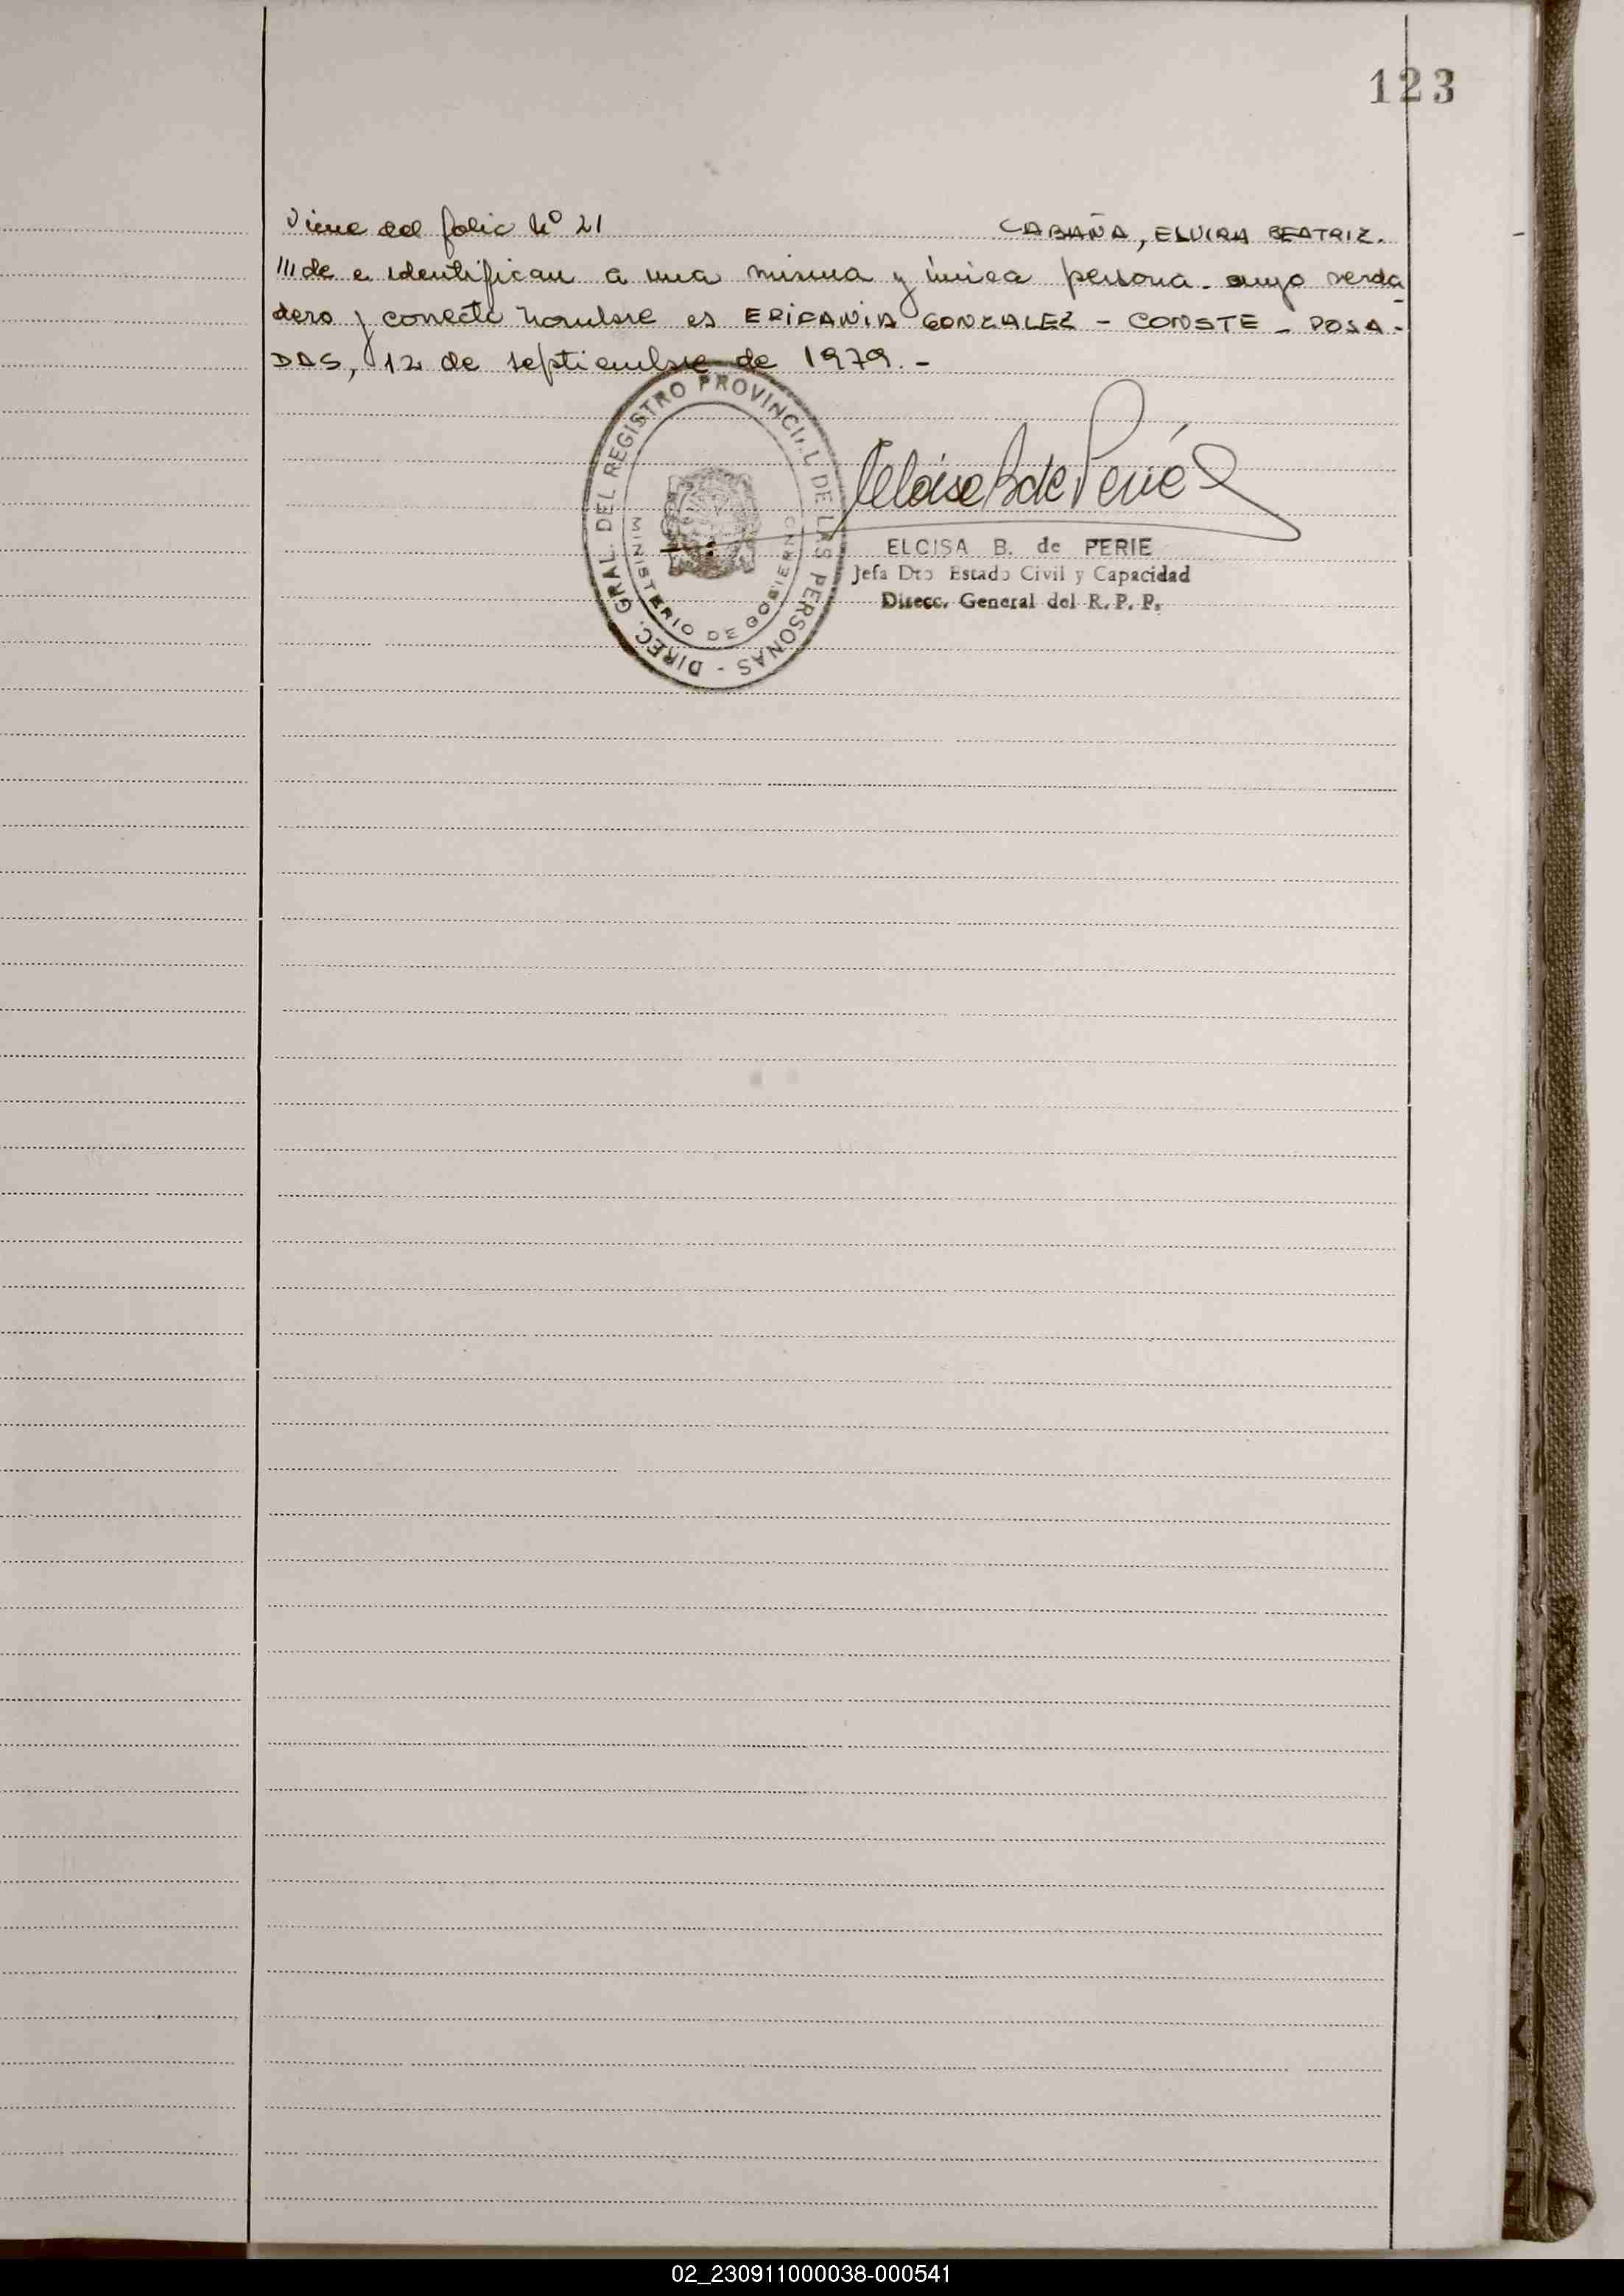 123
Viene del folio Nº 21 CABAÑA, ELVIRA BEATRIZ.
///de e identifican a una misma y única persona. cuyo verda
dero y correcto nombre es EPIFANIA GONZALEZ - CONSTE - POSA-
DAS, 12 de septiembre de 1979.-
DIREC. GRAL. DEL REGISTRO PROVINCIAL DE LAS PERSONAS -
MINISTERIO DE GOBIERNO
Eloisa B de Perié
ELOISA B. de PERIE
Jefa Dto Estado Civil y Capacidad
Direcc. General del R. P. P.
02_230911000038-000541